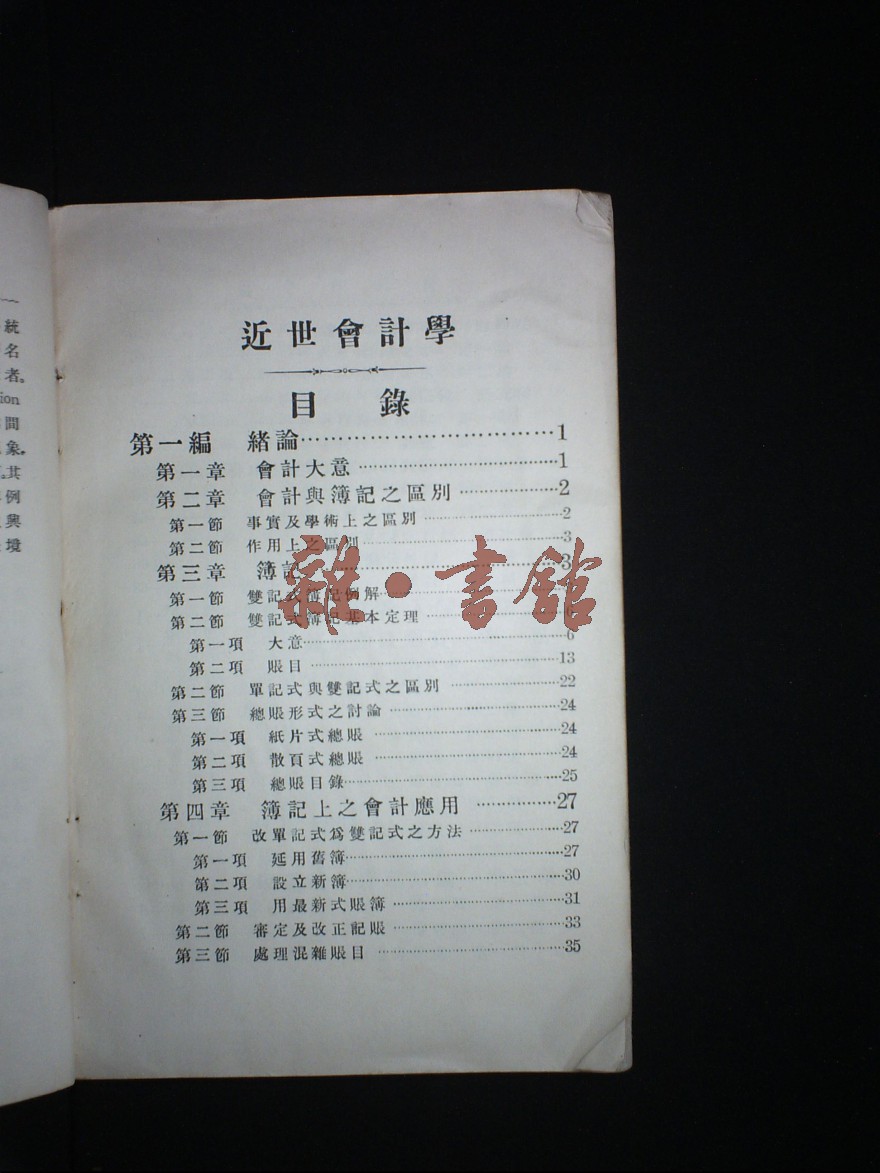 近世會計學
目錄
第一編 緒論……………………………1
第一章 會計大意……………………1
第二章 會計與簿記之區別…………2
第一節 事實及學術上之區別………………2
第二節 作用上之區別………………3
第三章 簿記………………3
第一節 雙記式簿記例解
第二節 雙記式簿記基本定理………6
第一項 大意………………6
第二項 賬目………………13
第二節 單記式與雙記式之區別………………22
第三節 總賬形式之討論………………24
第一項 紙片式總賬………………24
第二項 散頁式總賬………………24
第三項 總賬目錄………………25
第四章 簿記上之會計應用……………27
第一節 改單記式爲雙記式之方法……………27
第一項 延用舊簿………………27
第二項 設立新簿………………30
第三項 用最新式賬簿………………31
第二節 審定及改正記賬………………33
第三節 處理混雜賬目………………35
統
名
者。
ion
間
象。
其
例
興
境
雜·書館